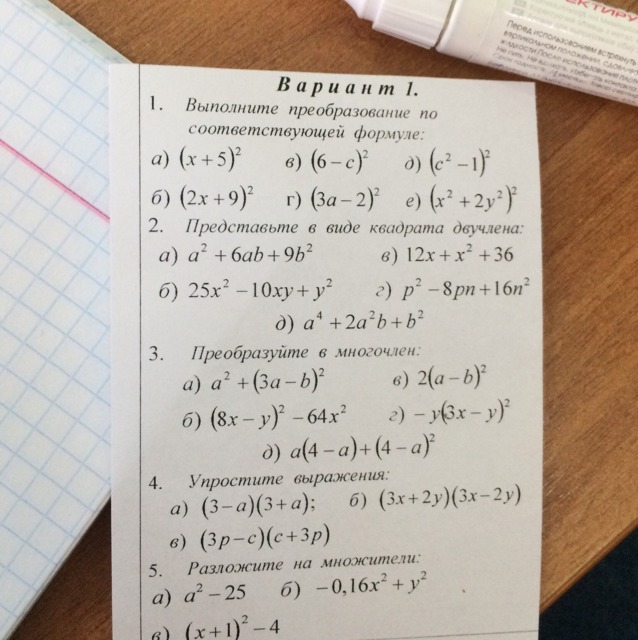 ЕКТИРУ
Перед использованием встряхнуть
вертикальном положении, сдав
Вариант 1.
1. Выполните преобразование по
соответствующей формуле:
а) (x+5)² в) (6−c)² д) (c²−1)²
б) (2x+9)² г) (3a−2)² е) (x²+2y²)²
2. Представьте в виде квадрата двучлена:
а) a²+6ab+9b² в) 12x+x²+36
б) 25x²−10xy+y² г) p²−8pn+16n²
д) a⁴+2a²b+b²
3. Преобразуйте в многочлен:
а) a²+(3a−b)² в) 2(a−b)²
б) (8x−y)²−64x² г) −y(3x−y)²
д) a(4−a)+(4−a)²
4. Упростите выражения:
а) (3−a)(3+a); б) (3x+2y)(3x−2y)
в) (3p−c)(c+3p)
5. Разложите на множители:
а) a²−25 б) −0,16x²+y²
в) (x+1)²−4